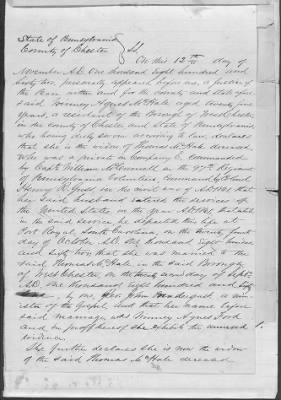 State of Pennsylvania
County of Chester } Ss
On this 12th day of
November A.D. One thousand Eight hundred and
Sixty two, personally appeared before me, a Justice of
the Peace within and for the County and State afore
said Winney Agnes McHale aged twenty five
years, a resident of the Borough of West Chester
in the county of Chester and State of Pennsylvania
who being duly sworn according to law, declares
that she is the widow of Thomas McHale deceased
who was a private in Company C, commanded
by Capt. William McConnell in the 97th Regiment
of Pennsylvania Volunteers Commanded by Colonel
Henry R. Guss in the civil war of AD 1861 that
her said husband entered the service of
the United States in the year AD 1861 that while
in the said service he departed this life at
Port Royal, South Carolina, on the twenty fourth
day of October A.D. One thousand Eight hundred
and Sixty two, that she was married to the
said Thomas McHale in the said Borough
of West Chester, on the day of Sept.
A.D. one thousand eight hundred and
by one, Rev. John a min
ister of the Gospel and that her name before
said marriage was Winney Agnes Ford
and in proof hereof she exhibits the annexed
evidence. 1.
She further declares she is now the widow
of the said Thomas McHale deceased